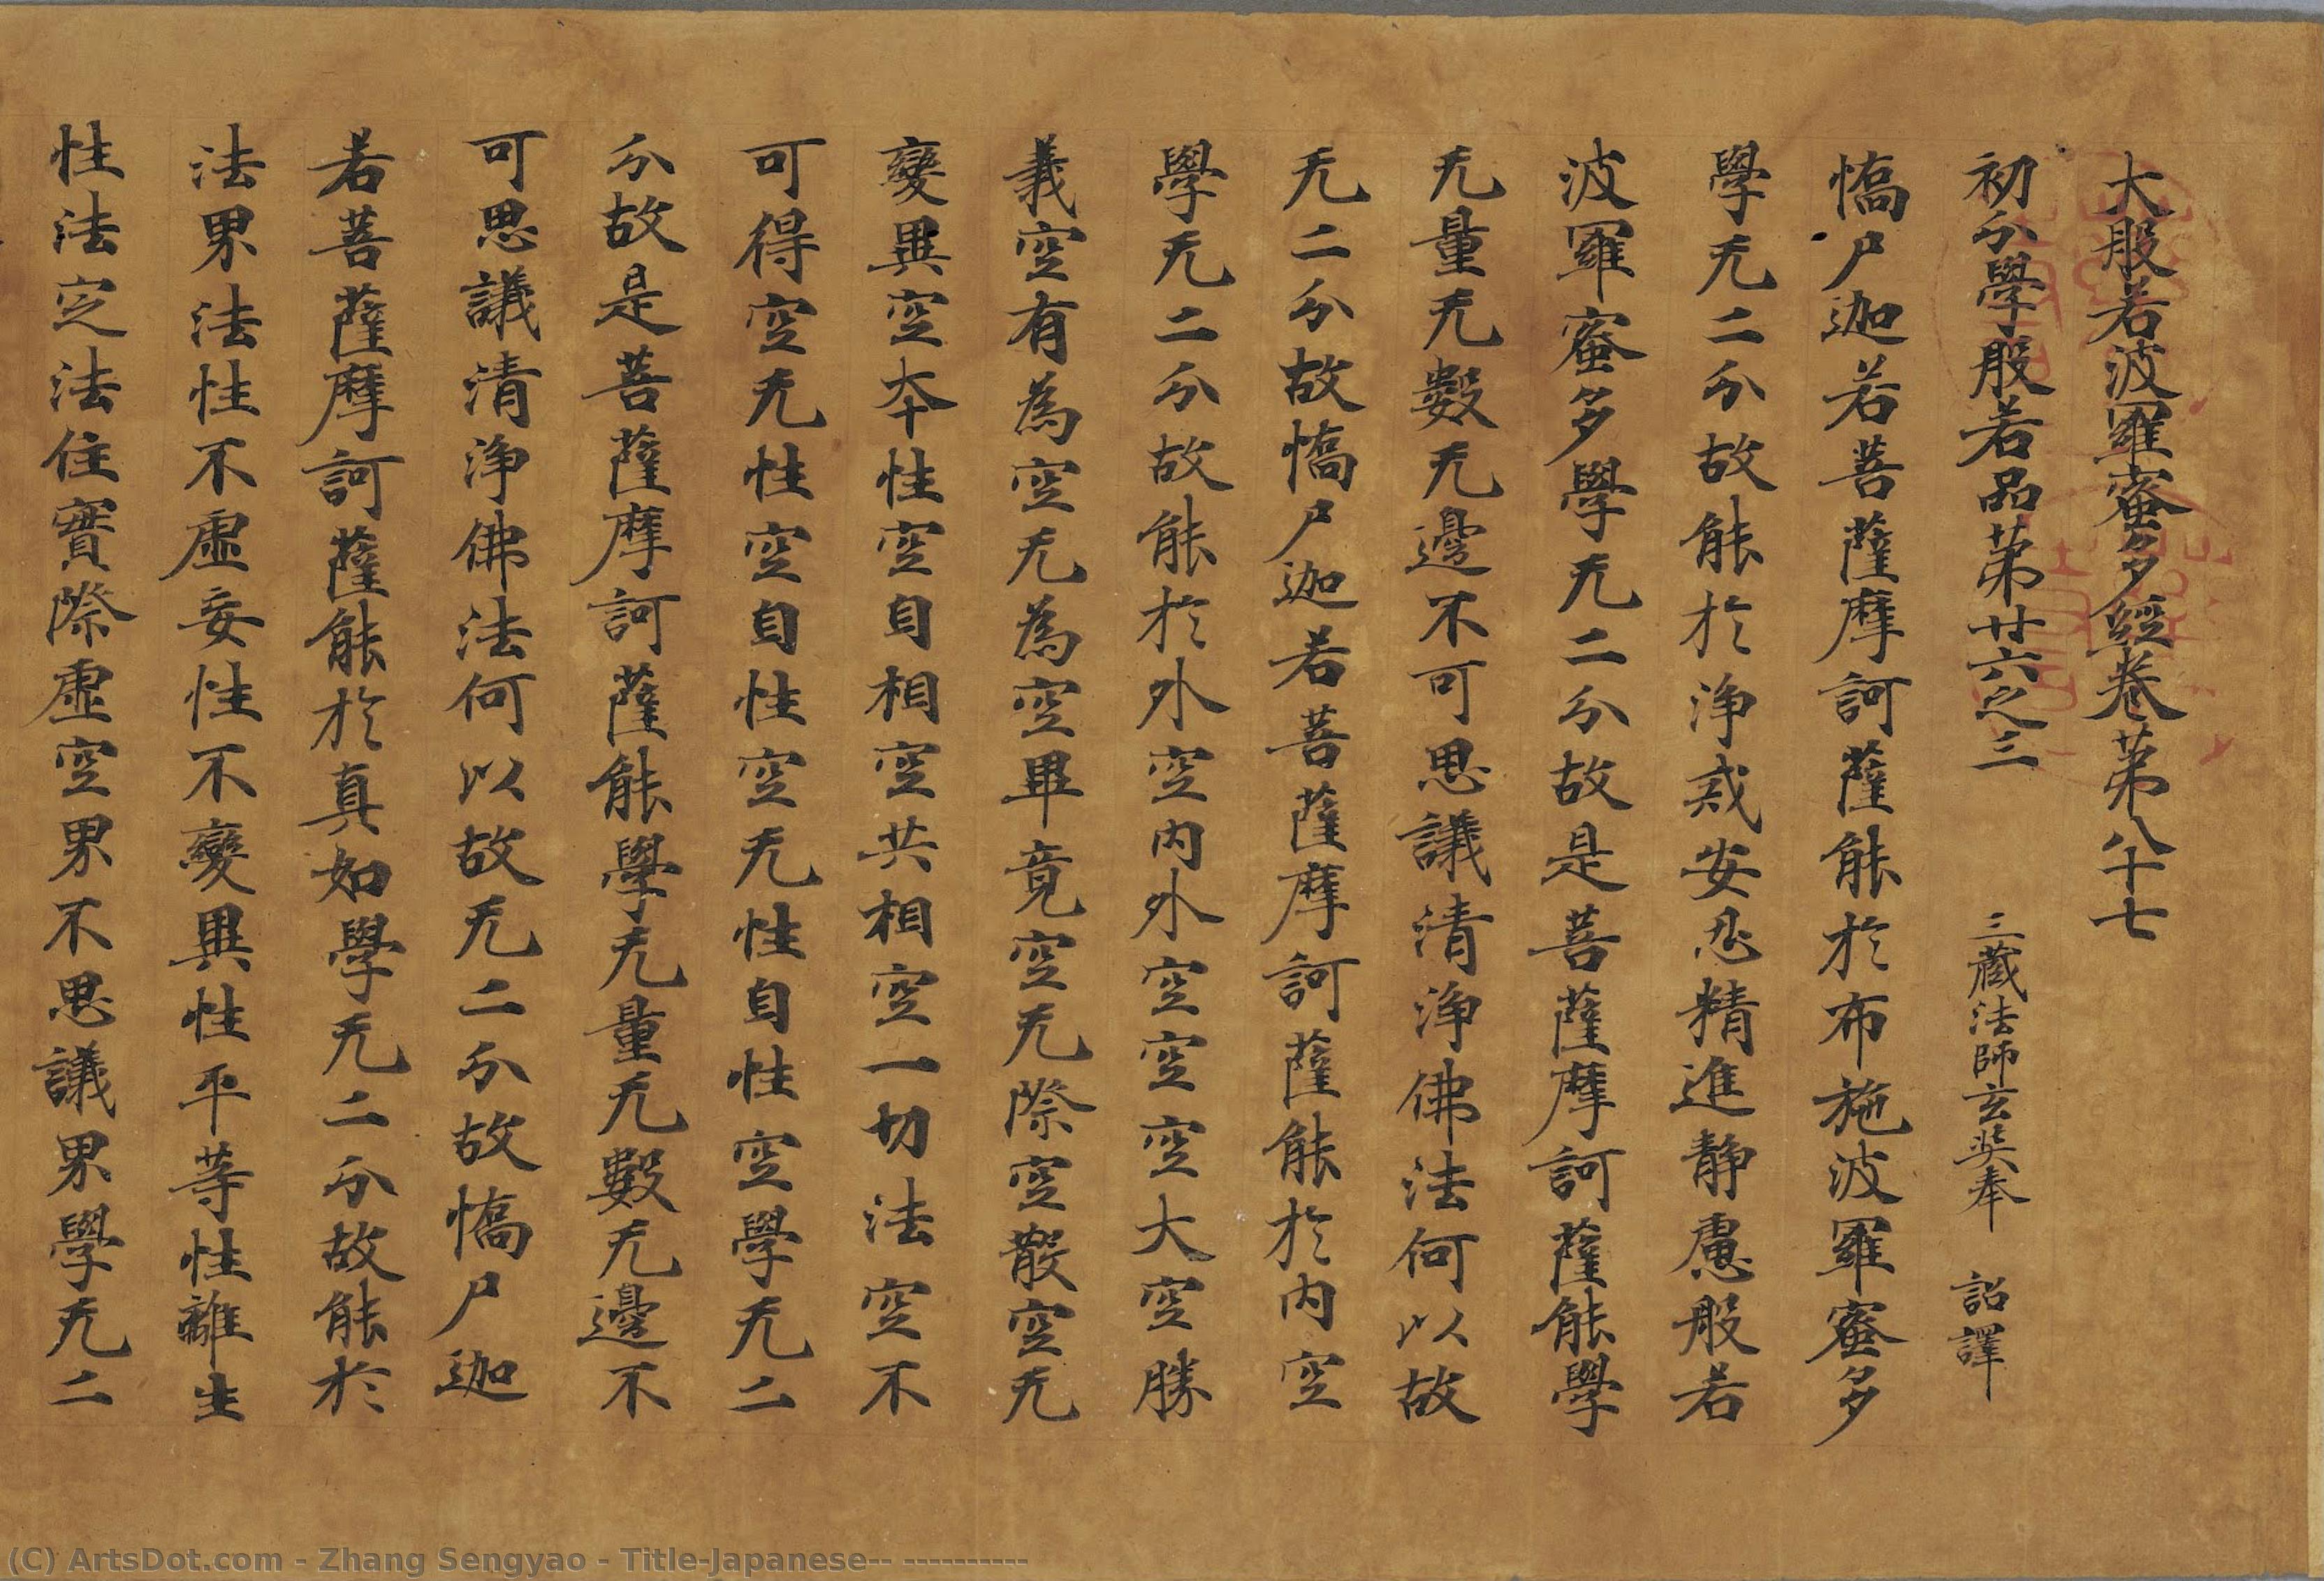 大般若波羅蜜多經卷第八十七
初分學般若品第廿六之三 三藏法師玄奘奉 詔譯
憍尸迦若菩薩摩訶薩能於布施波羅蜜多
學无二分故能於淨戒安忍精進靜慮般若
波羅蜜多學无二分故是菩薩摩訶薩能學
无量无數无邊不可思議清淨佛法何以故
无二分故憍尸迦若菩薩摩訶薩能於內空
學无二分故能於外空內外空空空大空勝
義空有為空无為空畢竟空无際空散空无
變異空本性空自相空共相空一切法空不
可得空无性空自性空无性自性空學无二
分故是菩薩摩訶薩能學无量无數无邊不
可思議清淨佛法何以故无二分故憍尸迦
若菩薩摩訶薩能於真如學无二分故能於
法界法性不虛妄性不變異性平等性離生
性法定法住實際虛空界不思議界學无二
(C) ArtsDot.com - Zhang Sengyao - Title-Japanese-- ----------